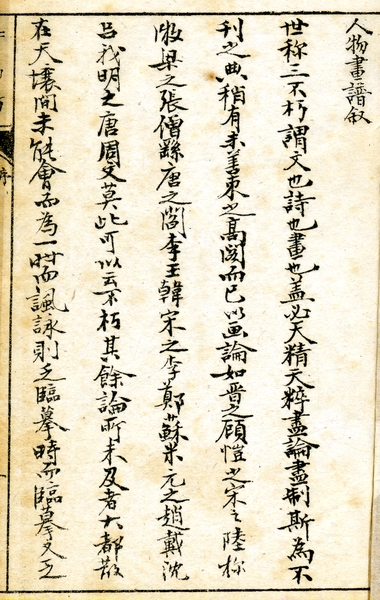 人物畫譜叙
世称三不朽謂文也詩也畫也盖必天精天粹盡論盡制斯為不
刊之典稍有未善束之髙閣而已以画論如晋之顾愷之宋之陸探
微梁之張僧繇唐之閻李王韓宋之李鄭蘇米元之趙戴沈
吕我明之唐周文莫此可以云不朽其餘論所未及者大都散
在天壤间未能會而為一时而諷詠則乏臨摹時而臨摹又乏
序